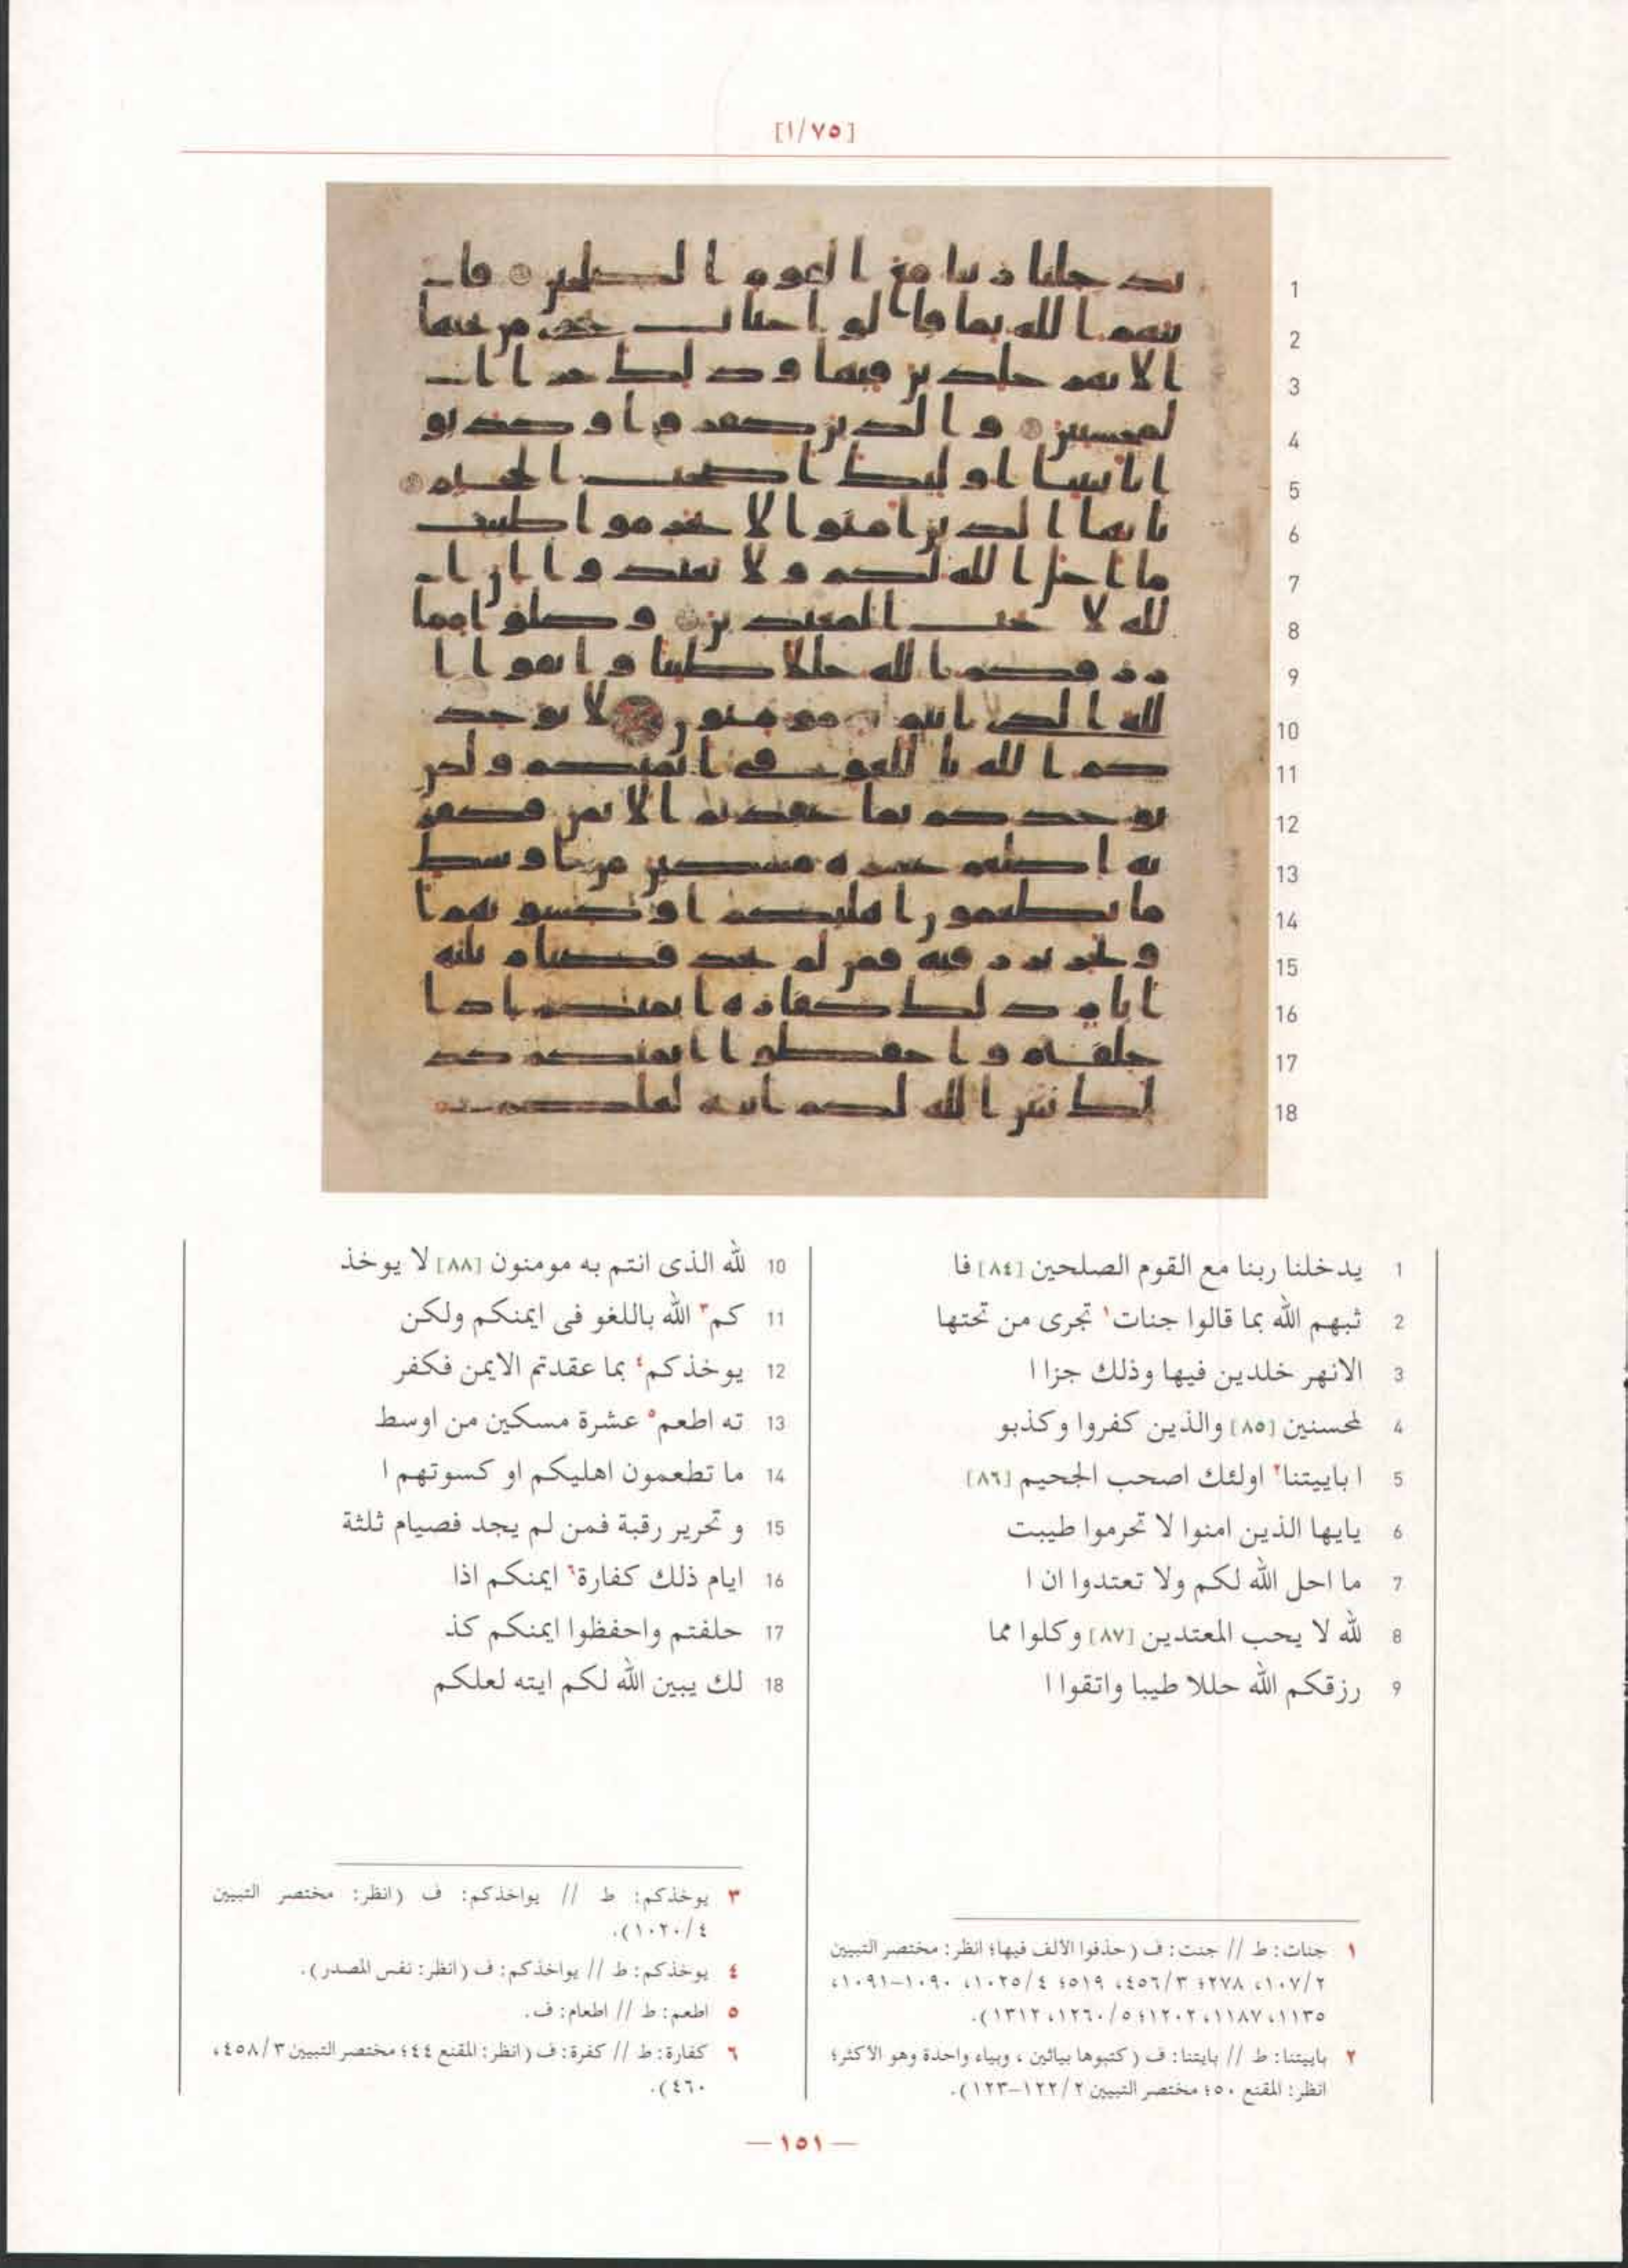 [٧٥/١]
1 يدخلنا ربنا مع القوم الصلحين [٨٤] فا
2 ثبهم الله بما قالوا جنات١ تجرى من تحتها
3 الانهر خلدين فيها وذلك جزا ا
4 لمحسنين [٨٥] والذين كفروا وكذبو
5 ا باييتنا٢ اولئك اصحب الجحيم [٨٦]
6 يايها الذين امنوا لا تحرموا طيبت
7 ما احل الله لكم ولا تعتدوا ان ا
8 لله لا يحب المعتدين [٨٧] وكلوا مما
9 رزقكم الله حللا طيبا واتقوا ا
10 لله الذى انتم به مومنون [٨٨] لا يوخذ
11 كم٣ الله باللغو فى ايمنكم ولكن
12 يوخذكم٤ بما عقدتم الايمن فكفر
13 ته اطعم٥ عشرة مسكين من اوسط
14 ما تطعمون اهليكم او كسوتهم ا
15 و تحرير رقبة فمن لم يجد فصيام ثلثة
16 ايام ذلك كفارة٦ ايمنكم اذا
17 حلفتم واحفظوا ايمنكم كذ
18 لك يبين الله لكم ايته لعلكم
١ جنات: ط // جنت: ف (حذفوا الألف فيها؛ انظر: مختصر التبيين
٢/١٠٧، ٢٧٨؛ ٣/٤٥٦، ٥١٩؛ ٤/١٠٢٥، ١٠٩٠–١٠٩١،
١١٣٥، ١١٨٧، ١٢٠٢؛ ٥/١٢٦٠، ١٣١٢).
٢ باييتنا: ط // بايتنا: ف (كتبوها بيائين، وبياء واحدة وهو الأكثر؛
انظر: المقنع ٥٠؛ مختصر التبيين ٢/١٢٢–١٢٣).
٣ يوخذكم: ط // يواخذكم: ف (انظر: مختصر التبيين
٤/١٠٢٠).
٤ يوخذكم: ط // يواخذكم: ف (انظر: نفس المصدر).
٥ اطعم: ط // اطعام: ف.
٦ كفارة: ط // كفرة: ف (انظر: المقنع ٤٤؛ مختصر التبيين ٣/٤٥٨،
٤٦٠).
— ١٥١ —